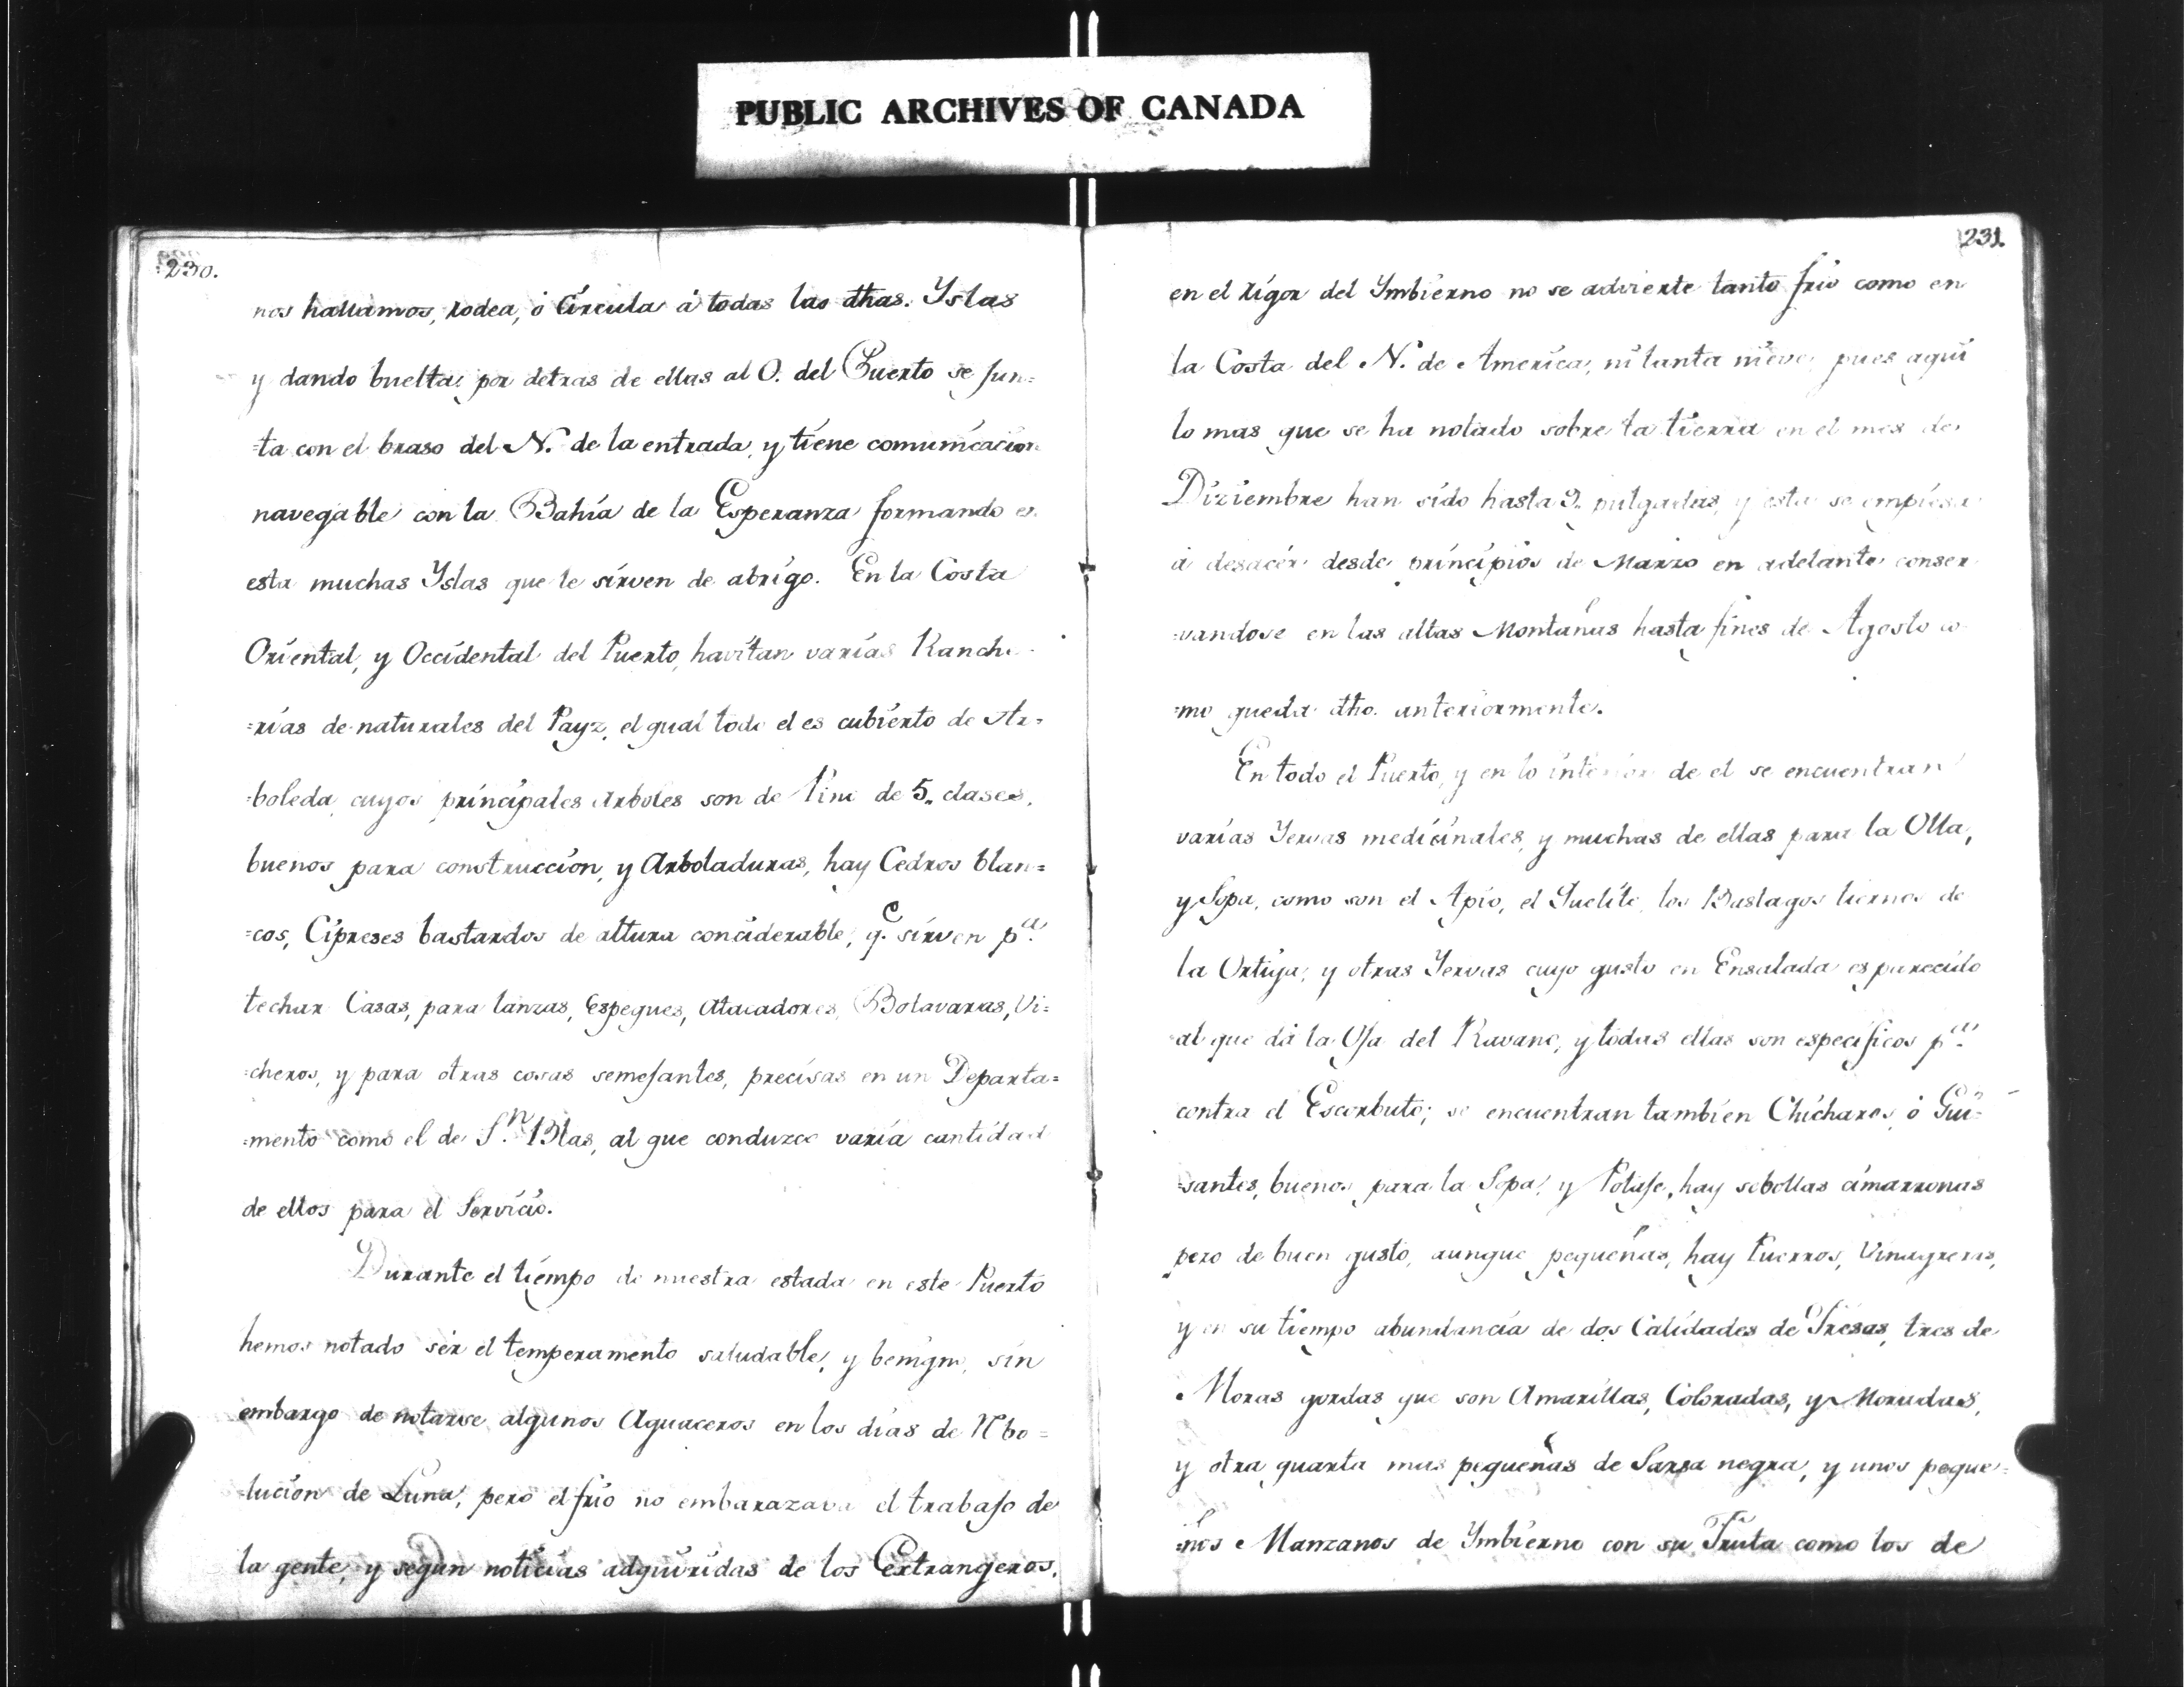 PUBLIC ARCHIVES OF CANADA
230.
nos hallamos, rodea, ó circula á todas las dhas. Yslas
y dando buelta por detras de ellas al O. del Puerto se jun=
=ta con el braso del N. de la entrada, y tiene comunicacion
navegable con la Bahía de la Esperanza formando en
esta muchas Yslas que le sirven de abrigo. En la Costa
Oriental, y Occidental del Puerto, havitan varias Ranche=
=rias de naturales del Payz, el qual todo el es cubierto de Ar=
=boleda, cuyos principales Arboles son de Pino de 5. clases,
buenos para construccion, y Arboladuras, hay Cedros blan=
=cos, Cipreses bastardos de altura conciderable, q.e sirven p.a
techar Casas, para lanzas, Espeques, Atacadores, Botavaras, Vi=
=cheros, y para otras cosas semejantes, precisas en un Departa=
=mento como el de S.n Blas, al que conduzco varia cantidad
de ellos para el Servicio.
Durante el tiempo de nuestra estada en este Puerto
hemos notado sér el temperamento saludable, y benigno, sin
embargo de notarse algunos Aguaceros en los dias de Rbo=
=lucion de Luna, pero el frio no embarazava el trabajo de
la gente, y segun noticias adquiridas de los Extrangeros,
231.
en el rigor del Ymbierno no se advierte tanto frio como en
la Costa del N. de America, ni tanta nieve, pues aqui
lo mas que se ha notado sobre la tierra en el mes de
Diziembre han sido hasta pulgadas, y esta se empiesa
á desacér desde principios de Marzo en adelante conser
=vandose en las altas Montañas hasta fines de Agosto co
=mo queda dho. anteriormente.
En todo el Puerto, y en lo interior de el se encuentran
varias Yervas medicinales, y muchas de ellas para la Olla,
y Sopa, como son el Apio, el Quelite, los Bastagos tiernos de
la Ortiga, y otras Yervas cuyo gusto en Ensalada es parecido
al que dá la Oja del Ravano, y todas ellas son especificos p.a
contra el Escorbuto; se encuentran tambien Chicharos, ó Gui=
=santes, buenos para la Sopa, y Potaje, hay sebollas cimarronas
pero de buen gusto, aunque pequeñas, hay Puerros, Vinagreras,
y en su tiempo abundancia de dos Calidades de Fresas, tres de
Moras gordas que son Amarillas, Coloradas, y Moradas,
y otra quarta mas pequeñas de Sarsa negra, y unos peque=
=ños Manzanos de Ymbierno con su Fruta como los de